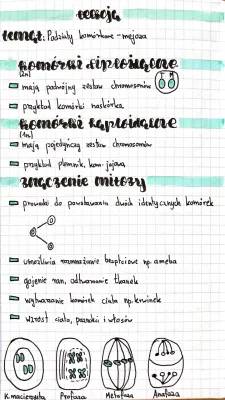 lekcja
temat: Podziały komórkowe - mejoza
komórki diploidalne
(2n)
mają podwójny zestaw chromosomów
przykład komórki naskórka
komórki haploidalne
(1n)
mają pojedynczy zestaw chromosomów
przykład plemnik, kom. jajowa
znaczenie mitozy
prowadzi do powstawania dwóch identycznych komórek
umożliwia rozmnażanie bezpłciowe np. ameba
gojenie ran, odtwarzanie tkanek
wytwarzanie komórek ciała np. krwinek
wzrost ciała, paznokci i włosów
K. macierzysta Profaza Metafaza Anafaza